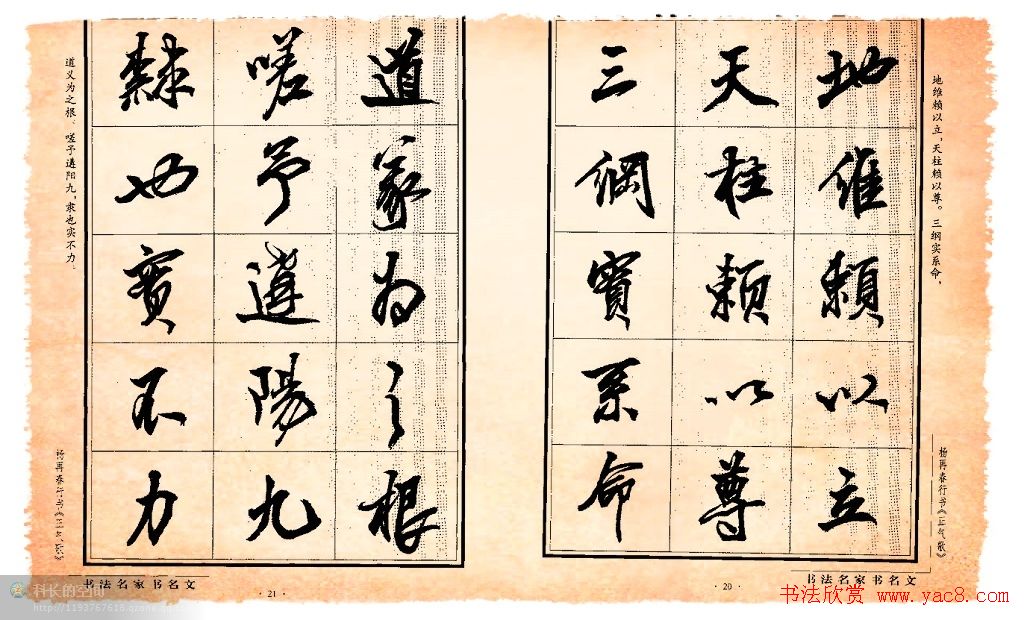 地维赖以立，天柱赖以尊。三纲实系命，
地維賴以立
天柱賴以尊
三綱實系命
杨再春行书《正气歌》
书法名家书名文
·20·
道義為之根
嗟予遘陽九
隸也實不力
道义为之根。嗟予遘阳九，隶也实不力。
杨再春行书《正气歌》
书法名家书名文
·21·
科长的空间
书法欣赏 www.yac8.com